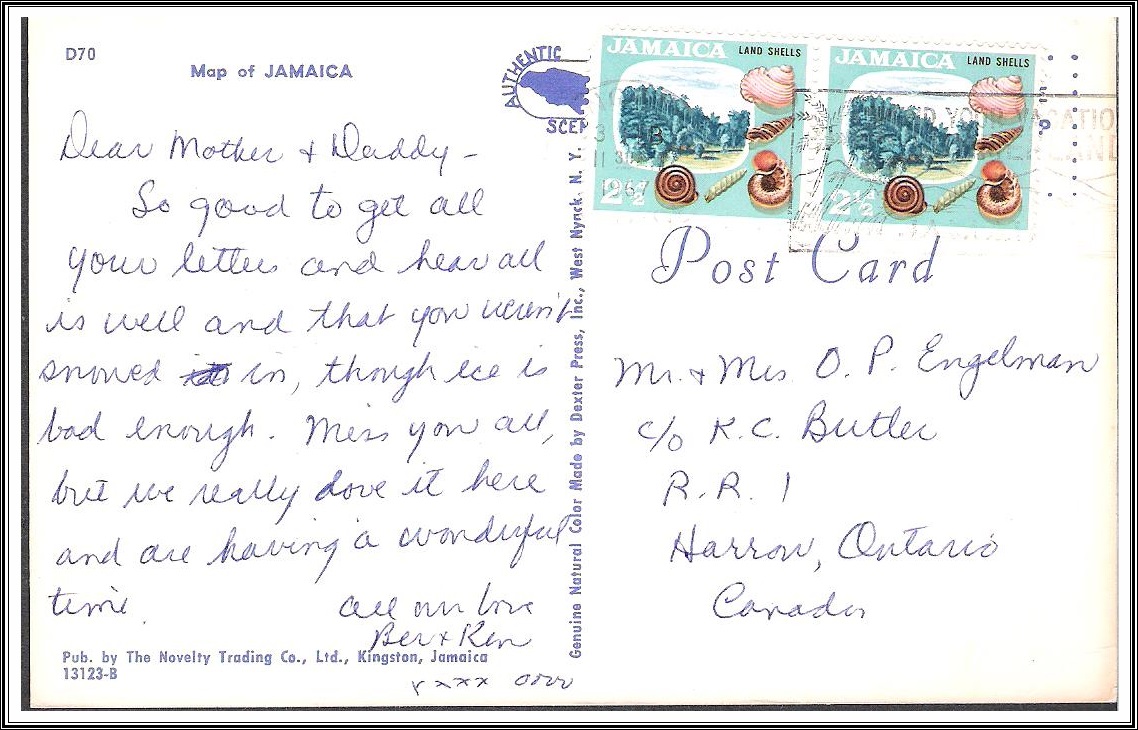 D70
Map of JAMAICA
Dear Mother & Daddy -
So good to get all
your letters and hear all
is well and that you weren't
snowed in, though ice is
bad enough. Miss you all,
but we really love it here
and are having a wonderful
time.
All our love
Bev & Ken
xxxx oooo
Pub. by The Novelty Trading Co., Ltd., Kingston, Jamaica
13123-B
AUTHENTIC
Genuine Natural Color Made by Dexter Press, Inc., West Nyack, N. Y.
JAMAICA LAND SHELLS
2½
JAMAICA LAND SHELLS
2½
1967
Post Card
Mr. & Mrs O. P. Engelman
c/o K.C. Butler
R.R. 1
Harrow, Ontario
Canada